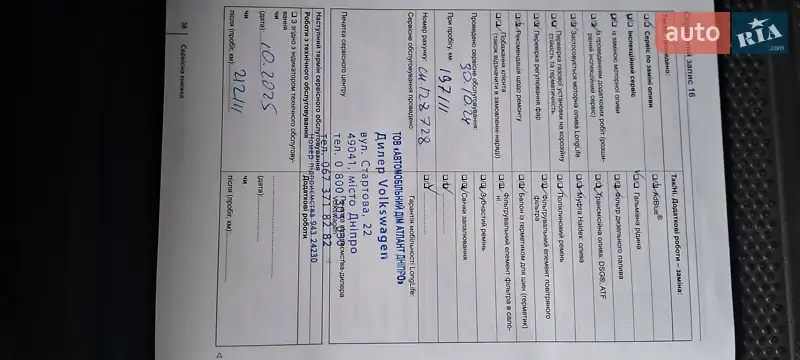 запис 16
Сервіс по заміні оливи
Інспекційний сервіс
із заміною моторної оливи
із проведенням додаткових робіт (розширений інспекційний сервіс)
Застосовується моторна олива LongLife
Перевірка газової установки на корозійну
стійкість та герметичність
Перевірка регулювання фар
Рекомендація щодо ремонту
Побажання клієнта
(також відзначити в замовленні-наряді)
Проведено сервісне обслуговування:
30.10.24
При пробігу, км:
197111
Номер рахунку: СИ 128728
Сервісне обслуговування проведено:
Так/Ні. Додаткові роботи – заміна:
AdBlue®
Гальмівна рідина
Фільтр дизельного палива
Трансмісійна олива: DSG®, ATF
Муфта Haldex: олива
Поліклиновий ремінь
Фільтрувальний елемент повітряного
фільтра
Балон із герметиком для шин (герметик)
Фільтрувальний елемент фільтра в салоні
Зубчастий ремінь
Свічки запалювання
Гарантія мобільності LongLife:
ТОВ «АВТОМОБІЛЬНИЙ ДІМ АТЛАНТ ДНІПРО»
Дилер Volkswagen
вул. Стартова, 22
49041, місто Дніпро
тел. 067 371 82 82
Номер підприємства 943 24230
Печатка сервісного центру
Наступний термін сервісного обслуговування
Роботи з технічного обслуговування
Додаткові роботи
З згідно з індикатором технічного обслуговування
чи
(дата): 10.2025
чи
після (пробіг, км): 212111
(дата):
чи
після (пробіг, км):
38 Сервісна книжка
auto RIA.com